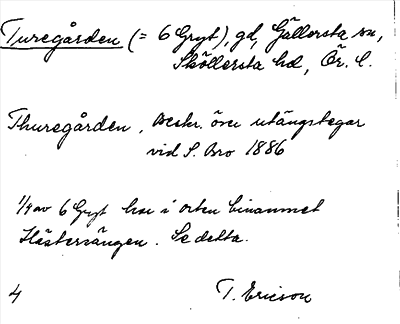 Turegården (= 6 Gryt), gd, Gällersta sn,
Sköllersta hd, Ör. l.
Thuregården, Beskr. över utängslagar
vid S. Bro 1886
1/4 av 6 Gryt har i orten binamnet
Hästersängen. Se detta.
4 T. Ericson